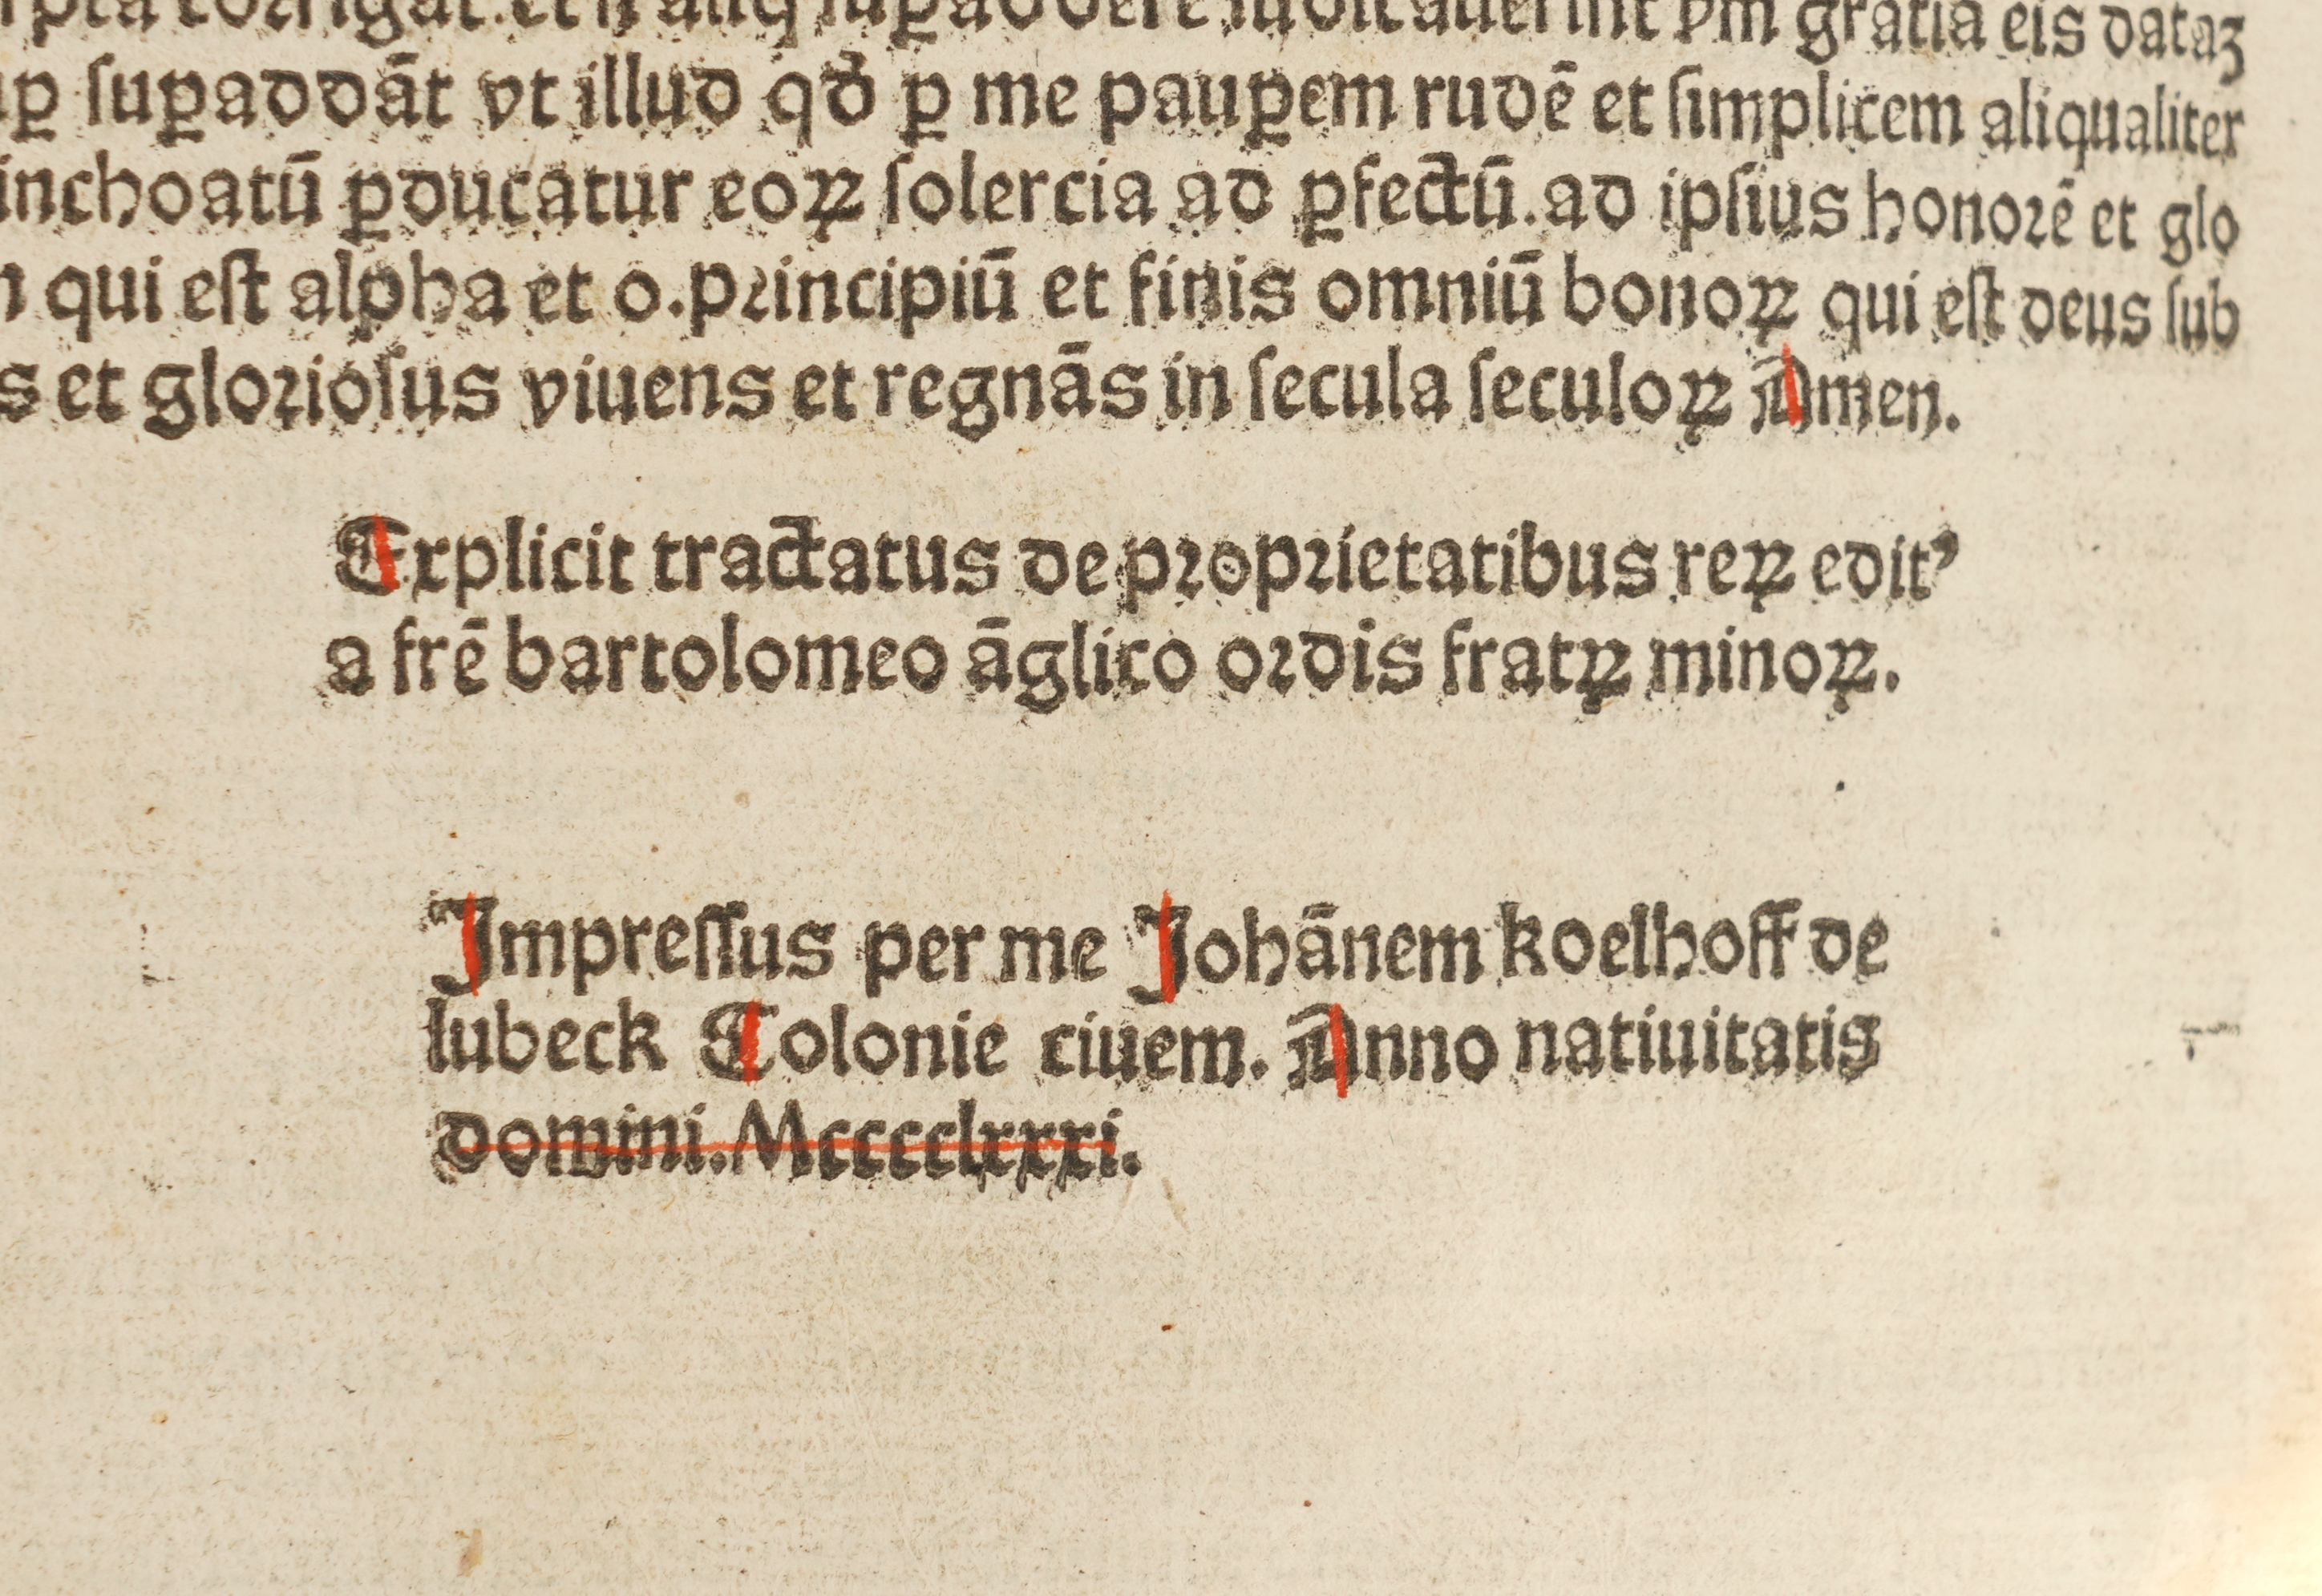 corrigat. et si aliq̃ suꝑaddere iudicauerint ẜm gratia eis dataꝫ
suꝑaddāt vt illud qđ ꝑ me pauꝑem rudē et ſimplicem aliqualiter
inchoatū ꝑducatur eoꝝ ſolercia ad ꝑfectū. ad ipſius honorē et glo
qui eſt alpha et o. principiū et finis omniū bonoꝝ qui eſt deus ſub
s et glorioſus viuens et regnās in ſecula ſeculoꝝ Amen.
Explicit tractatus de proprietatibus reꝝ edit⁹
a frē bartolomeo āglico ordis fratꝝ minoꝝ.
Impreſſus per me Johānem koelhoff de
lubeck Colonie ciuem. Anno natiuitatis
domini. Mcccclxxxi.